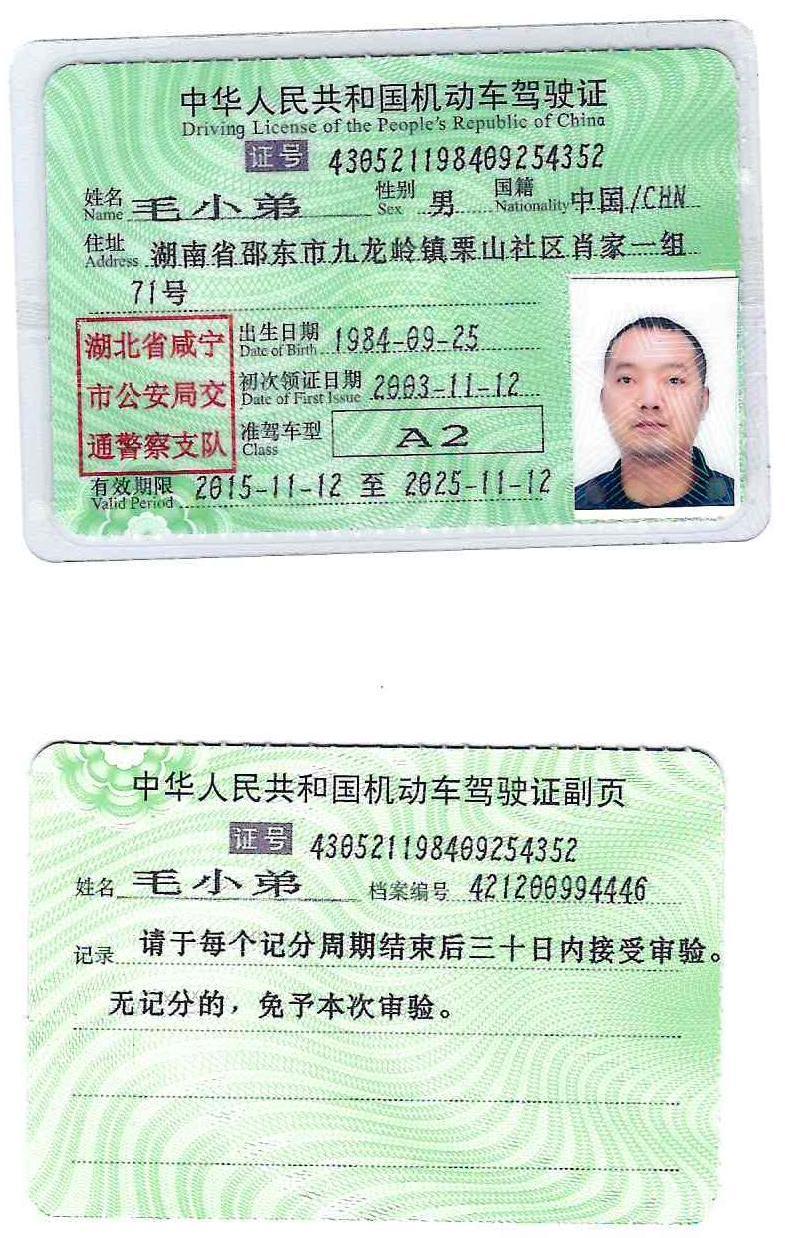 中华人民共和国机动车驾驶证
Driving License of the People's Republic of China
证号 430521198409254352
姓名 Name 毛小弟 性别 Sex 男 国籍 Nationality 中国/CHN
住址 Address 湖南省邵东市九龙岭镇栗山社区肖家一组
71号
湖北省咸宁
市公安局交
通警察支队
出生日期 Date of Birth 1984-09-25
初次领证日期 Date of First Issue 2003-11-12
准驾车型 Class A2
有效期限 Valid Period 2015-11-12 至 2025-11-12
中华人民共和国机动车驾驶证副页
证号 430521198409254352
姓名 毛小弟 档案编号 421200994446
记录 请于每个记分周期结束后三十日内接受审验。
无记分的，免予本次审验。